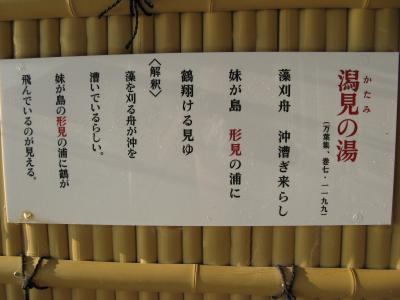 潟見の湯
かたみ
（万葉集、巻七・一一九九）
藻刈舟　沖漕ぎ来らし
妹が島　形見の浦に
鶴翔ける見ゆ
〈解釈〉
藻を刈る舟が沖を
漕いでいるらしい。
妹が島の形見の浦に鶴が
飛んでいるのが見える。